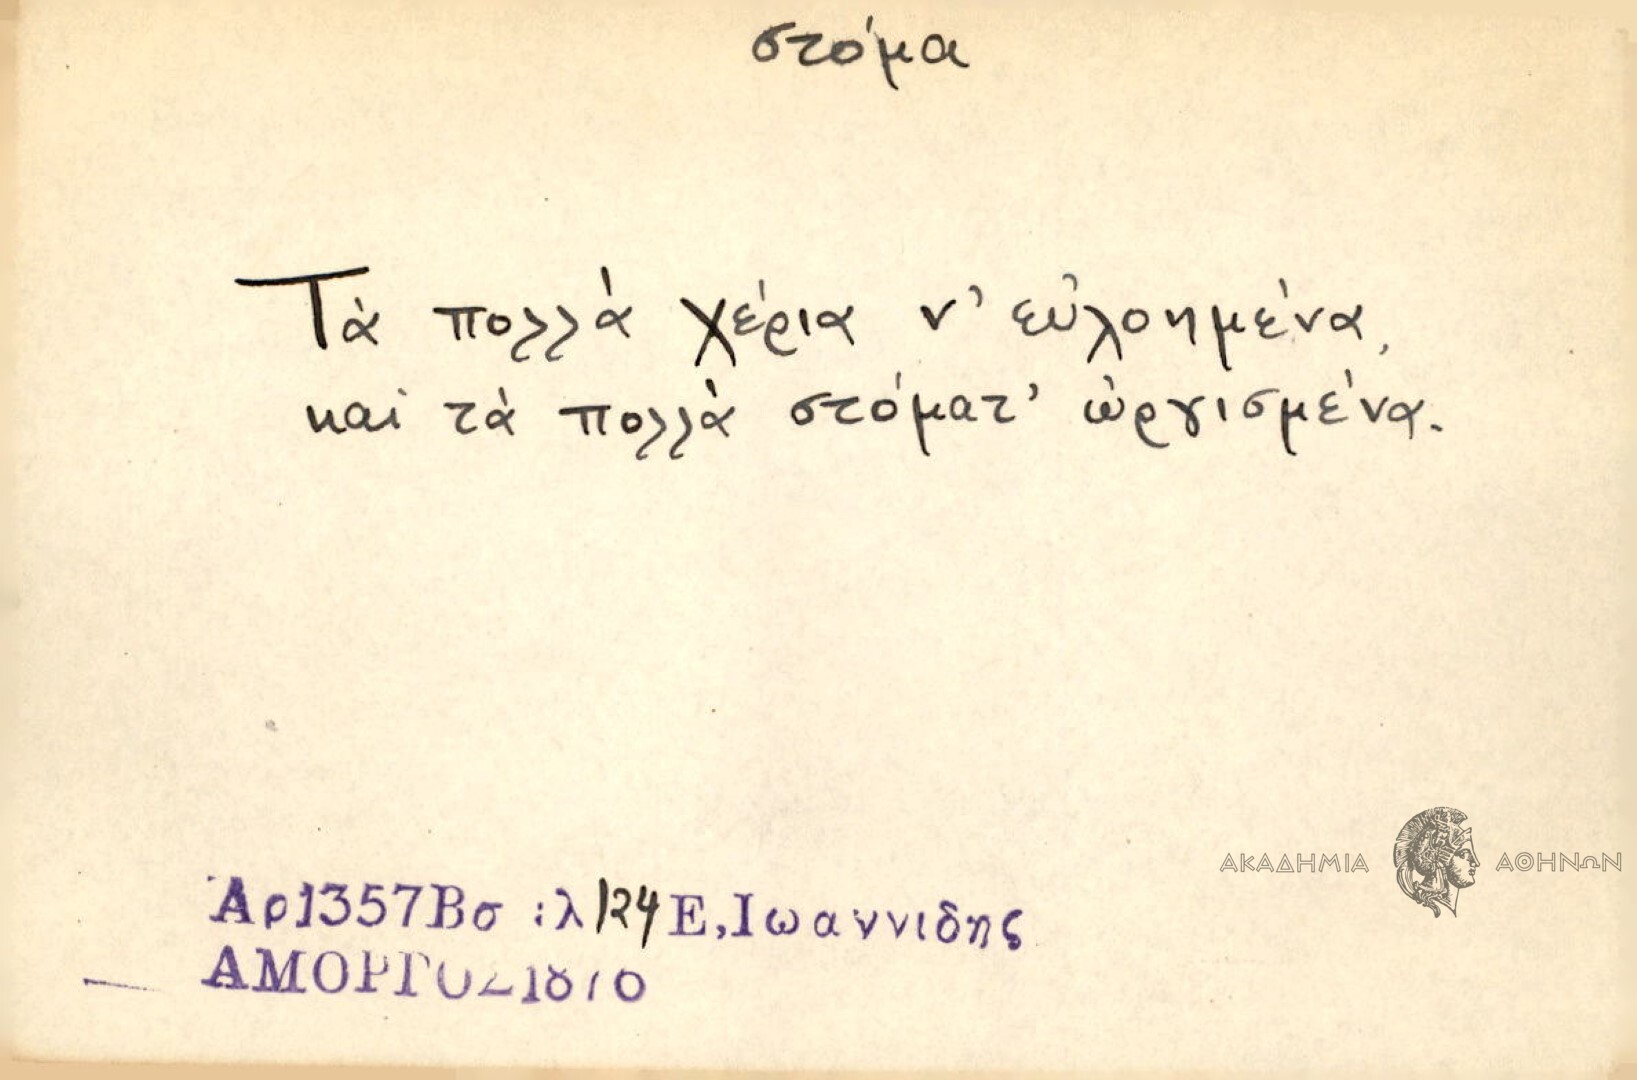 στόμα
Τὰ πολλὰ χέρια ν' εὐλοημένα,
καὶ τὰ πολλὰ στόματ' ὠργισμένα.
ΑΚΑΔΗΜΙΑ ΑΘΗΝΩΝ
Ἀρ1357Βσ :λ 124 Ε,Ιωαννιδης
ΑΜΟΡΓΟΣ1876